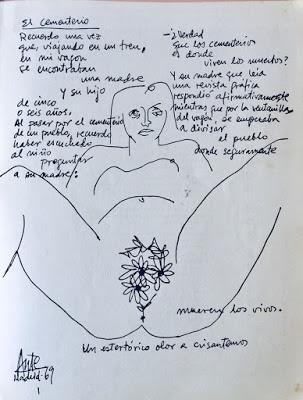 El cementerio
Recuerdo una vez
que, viajando en un tren,
en mi vagon
se encontraban
una madre
y su hijo
de cinco
o seis años.
Al pasar por el cementerio
de un pueblo, recuerdo
haber escuchado
al niño
preguntar
a su madre:
-¿Verdad
que los cementerios
es donde
viven los muertos?
Y su madre que leía
una revista gráfica
respondió afirmativamente
mientras que por la ventanilla
del vagon, se empezaba
a divisar
el pueblo
donde seguramente
mueren los vivos.
Un estertórico olor a crisantemos
Madrid-69
1